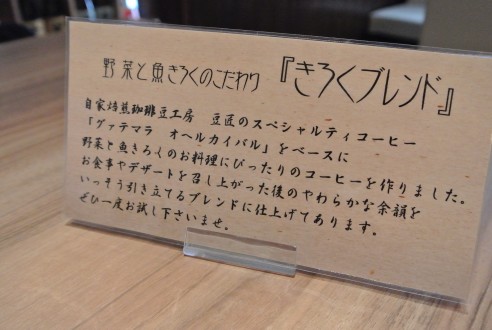 野菜と魚きろくのこだわり『きろくブレンド』
自家焙煎珈琲豆工房　豆匠のスペシャルティコーヒー
「グァテマラ　オヘルカイバル」をベースに
野菜と魚きろくのお料理にぴったりのコーヒーを作りました。
お食事やデザートを召し上がった後のやわらかな余韻を
いっそう引き立てるブレンドに仕上げてあります。
ぜひ一度お試し下さいませ。